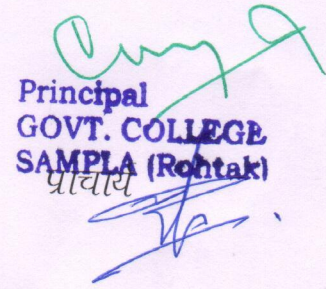 Principal
GOVT. COLLEGE
SAMPLA (Rohtak)
प्राचार्य